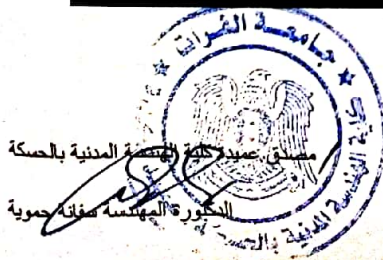 جامعة الفرات
كلية الهندسة المدنية بالحسكة
مصدق عميدة كلية الهندسة المدنية بالحسكة
الدكتورة المهندسة سفانة حموية